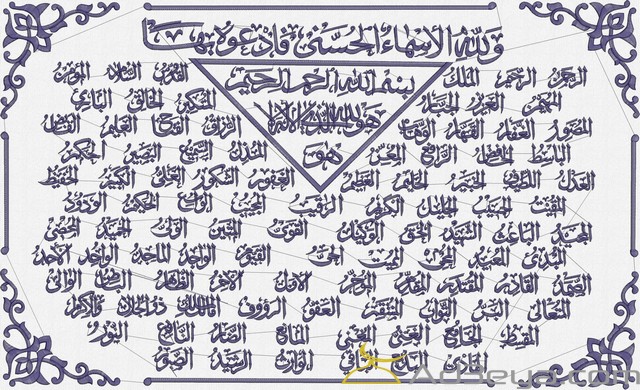 ولله الأسماء الحسنى فادعوه بها
بسم الله الرحمن الرحيم
هو الله الذي لا إله إلا
هو
الرحمن الرحيم الملك القدوس السلام المؤمن
المهيمن العزيز الجبار المتكبر الخالق البارئ
المصور الغفار القهار الوهاب الرزاق الفتاح العليم القابض
الباسط الخافض الرافع المعز المذل السميع البصير الحكم
العدل اللطيف الخبير الحليم العظيم الغفور الشكور العلي الكبير الحفيظ
المقيت الحسيب الجليل الكريم الرقيب المجيب الواسع الحكيم الودود
المجيد الباعث الشهيد الحق الوكيل القوي المتين الولي الحميد المحصي
المبدئ المعيد المحيي المميت الحي القيوم الواجد الماجد الواحد الأحد
الصمد القادر المقتدر المقدم المؤخر الأول الآخر الظاهر الباطن الوالي
المتعالي البر التواب المنتقم العفو الرؤوف مالك الملك ذو الجلال والإكرام
المقسط الجامع الغني المغني المانع الضار النافع النور
الهادي البديع الباقي الوارث الرشيد الصبور